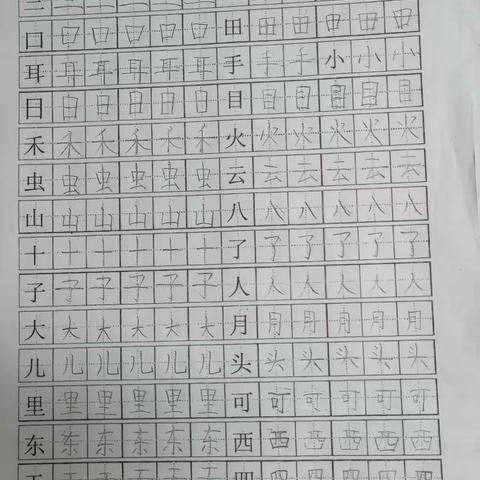 口口口口口口田田田田田田
耳耳耳耳耳耳手手手小小小
日日日日日日目目目目目目
禾禾禾禾禾禾火火火火火火
虫虫虫虫虫虫云云云云云云
山山山山山山八八八八八八
十十十十十十了了了了了了
子子子子子子人人人人人人
大大大大大大月月月月月月
儿儿儿儿儿儿头头头头头头
里里里里里里可可可可可可
东东东东东东西西西西西西